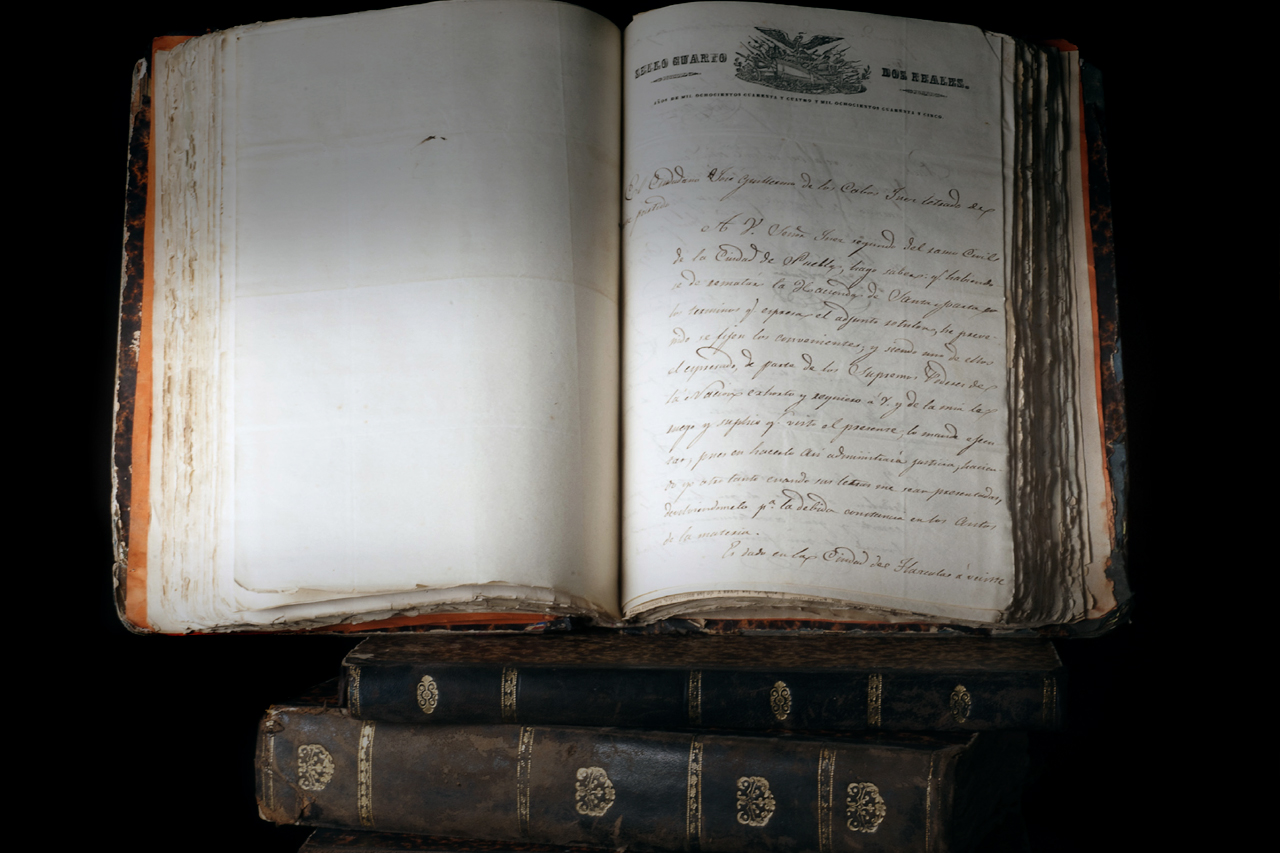 SELLO CUARTO
DOS REALES.
AÑOS DE MIL OCHOCIENTOS CUARENTA Y CUATRO Y MIL OCHOCIENTOS CUARENTA Y CINCO.
El Ciudadano José Guillermo de los Cobos Juez letrado de
su partido
A V. Señor Juez segundo del ramo Civil
de la Ciudad de Puebla, hago saber: q. habiendo
se de rematar la Hacienda de Santa
los terminos q. espresa el adjunto rotulon, he preve-
nido se fijen los convenientes, y siendo uno de ellos
el espresado, de parte de los Supremos Poderes de
la Nacion exhorto y requiero á V. y de la mia le
ruego y suplico q. visto el presente, lo mande ejecu
tar, pues en hacerlo asi administrará justicia, hacien-
do yo otro tanto cuando sus letras me sean presentadas,
devolviendomelo pª. la debida constancia en los Autos
de la materia.
Es dado en la Ciudad de Tlaxcala á veinte